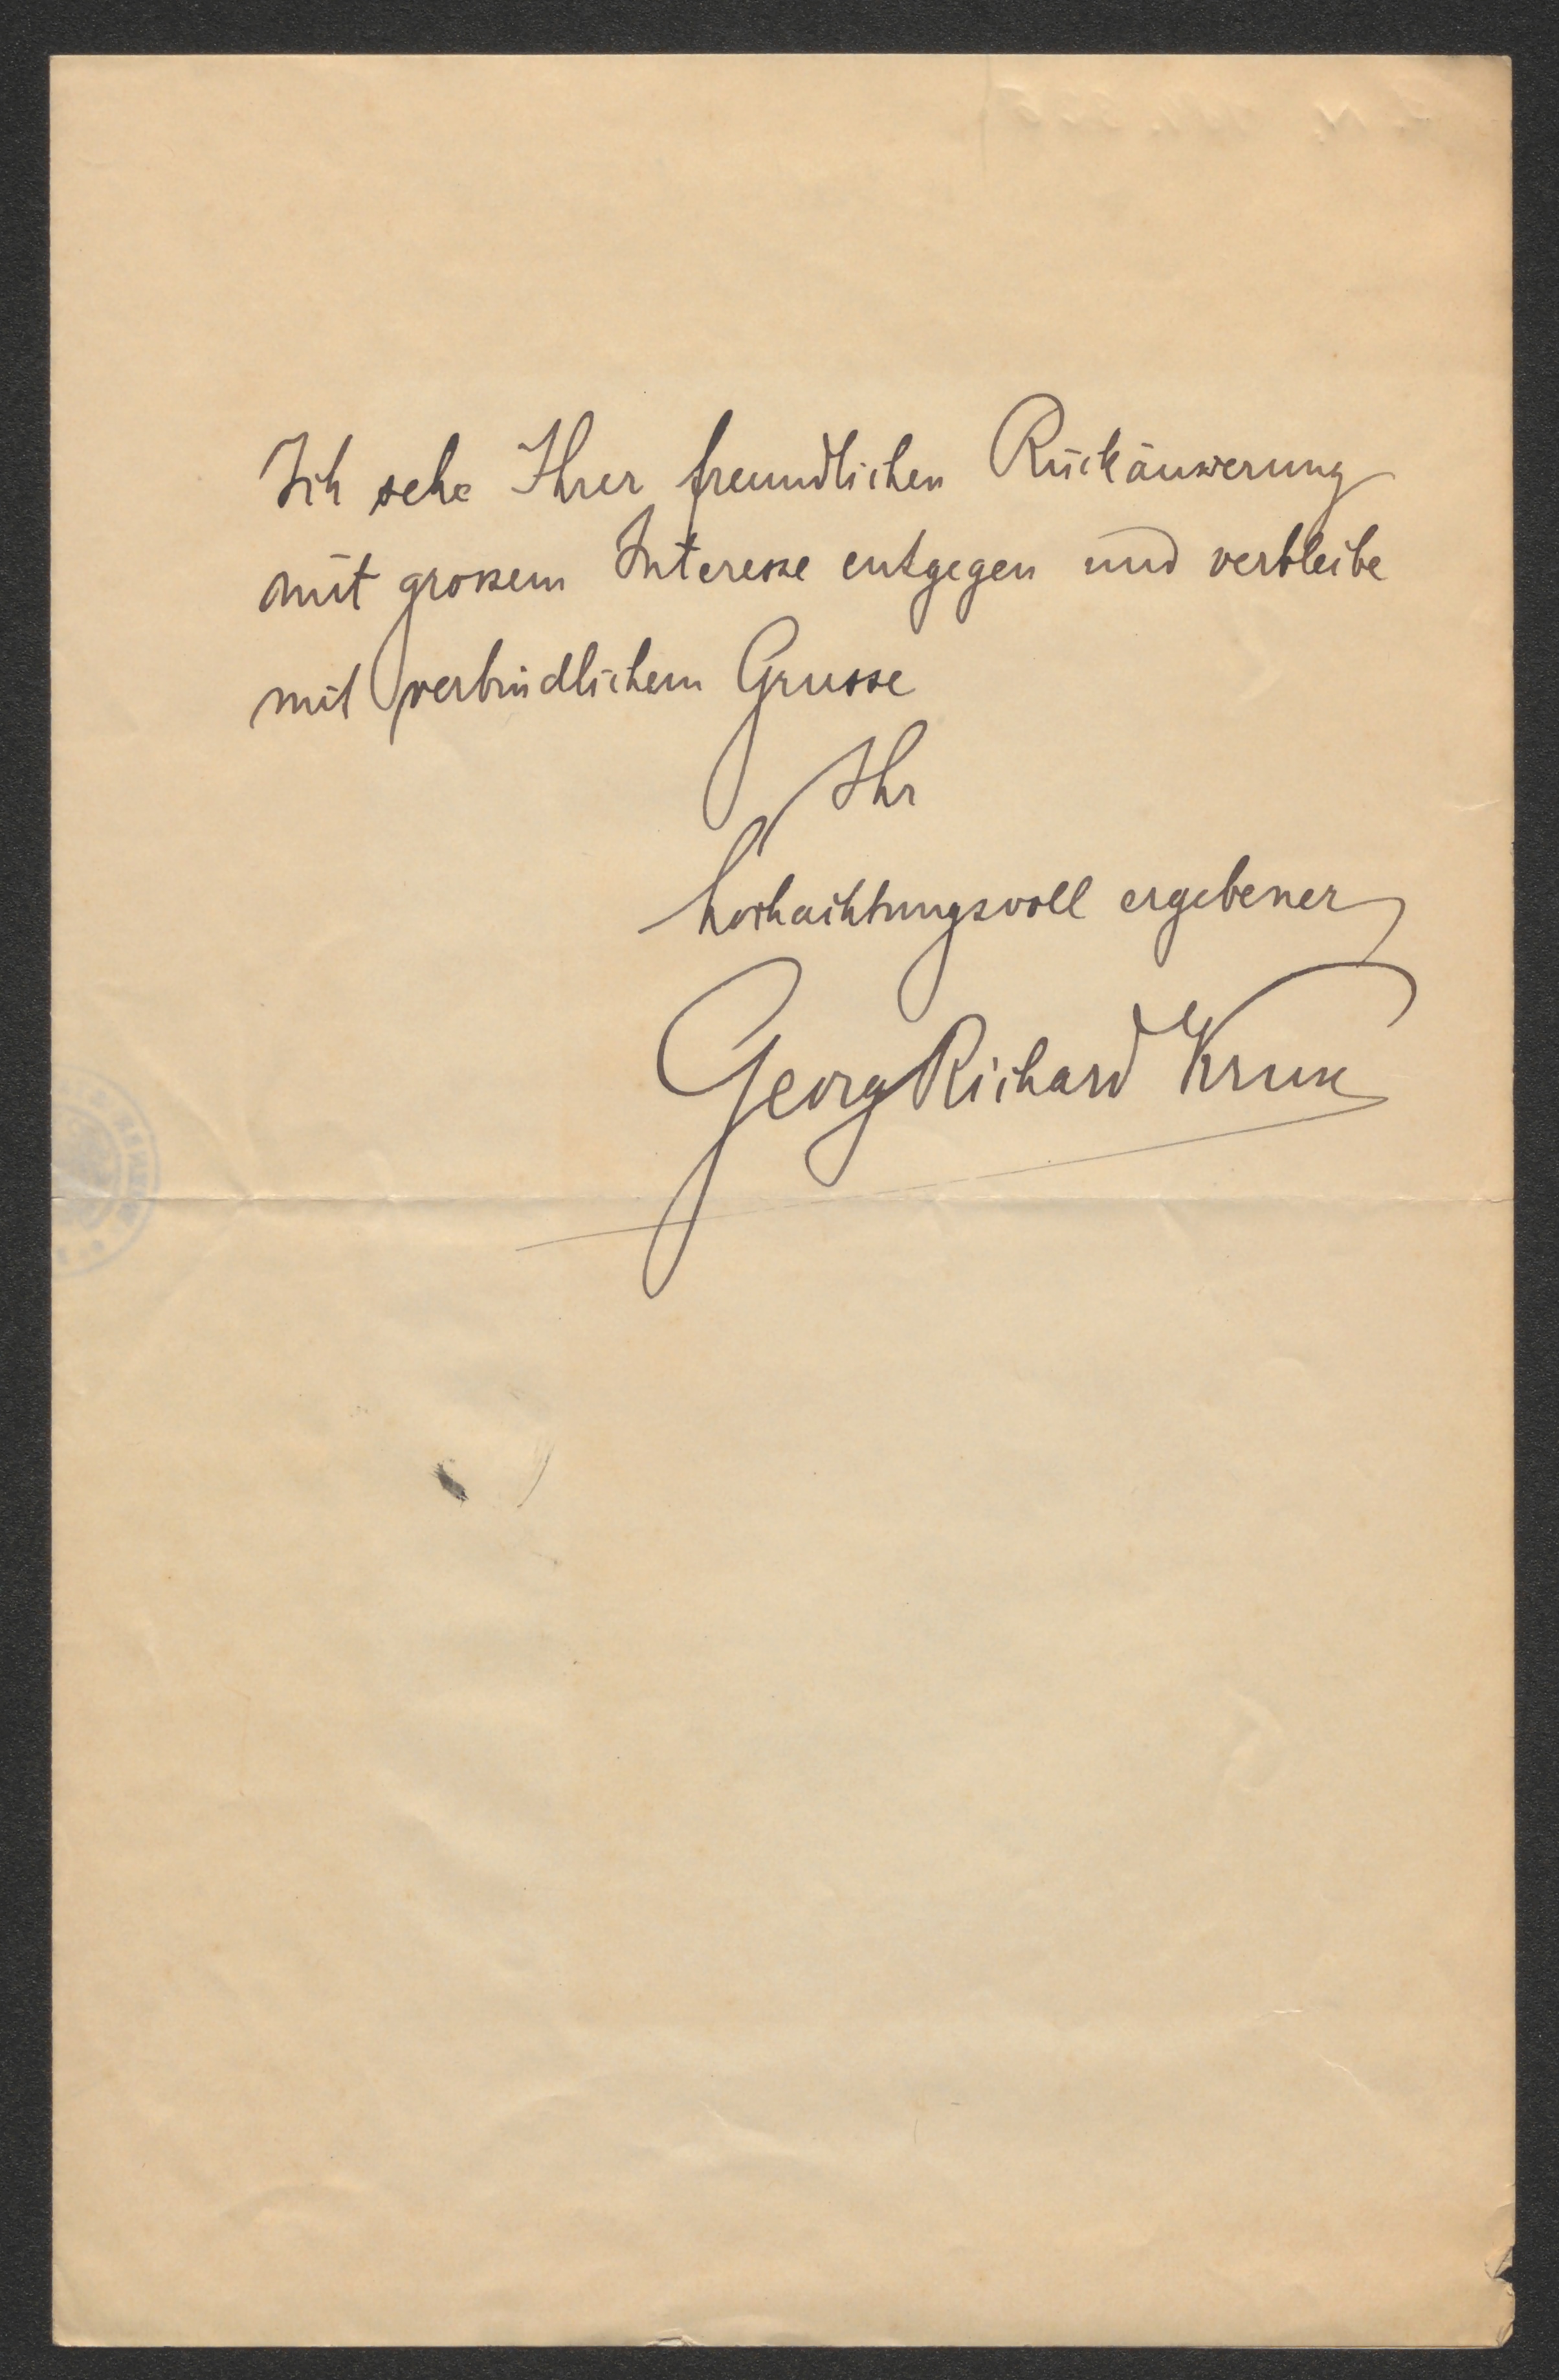 Ich sehe Ihrer freundlichen Rückäusserung
mit grossem Interesse entgegen und verbleibe
mit verbindlichem Grusse
Ihr
hochachtungsvoll ergebener
Georg Richard Kruse